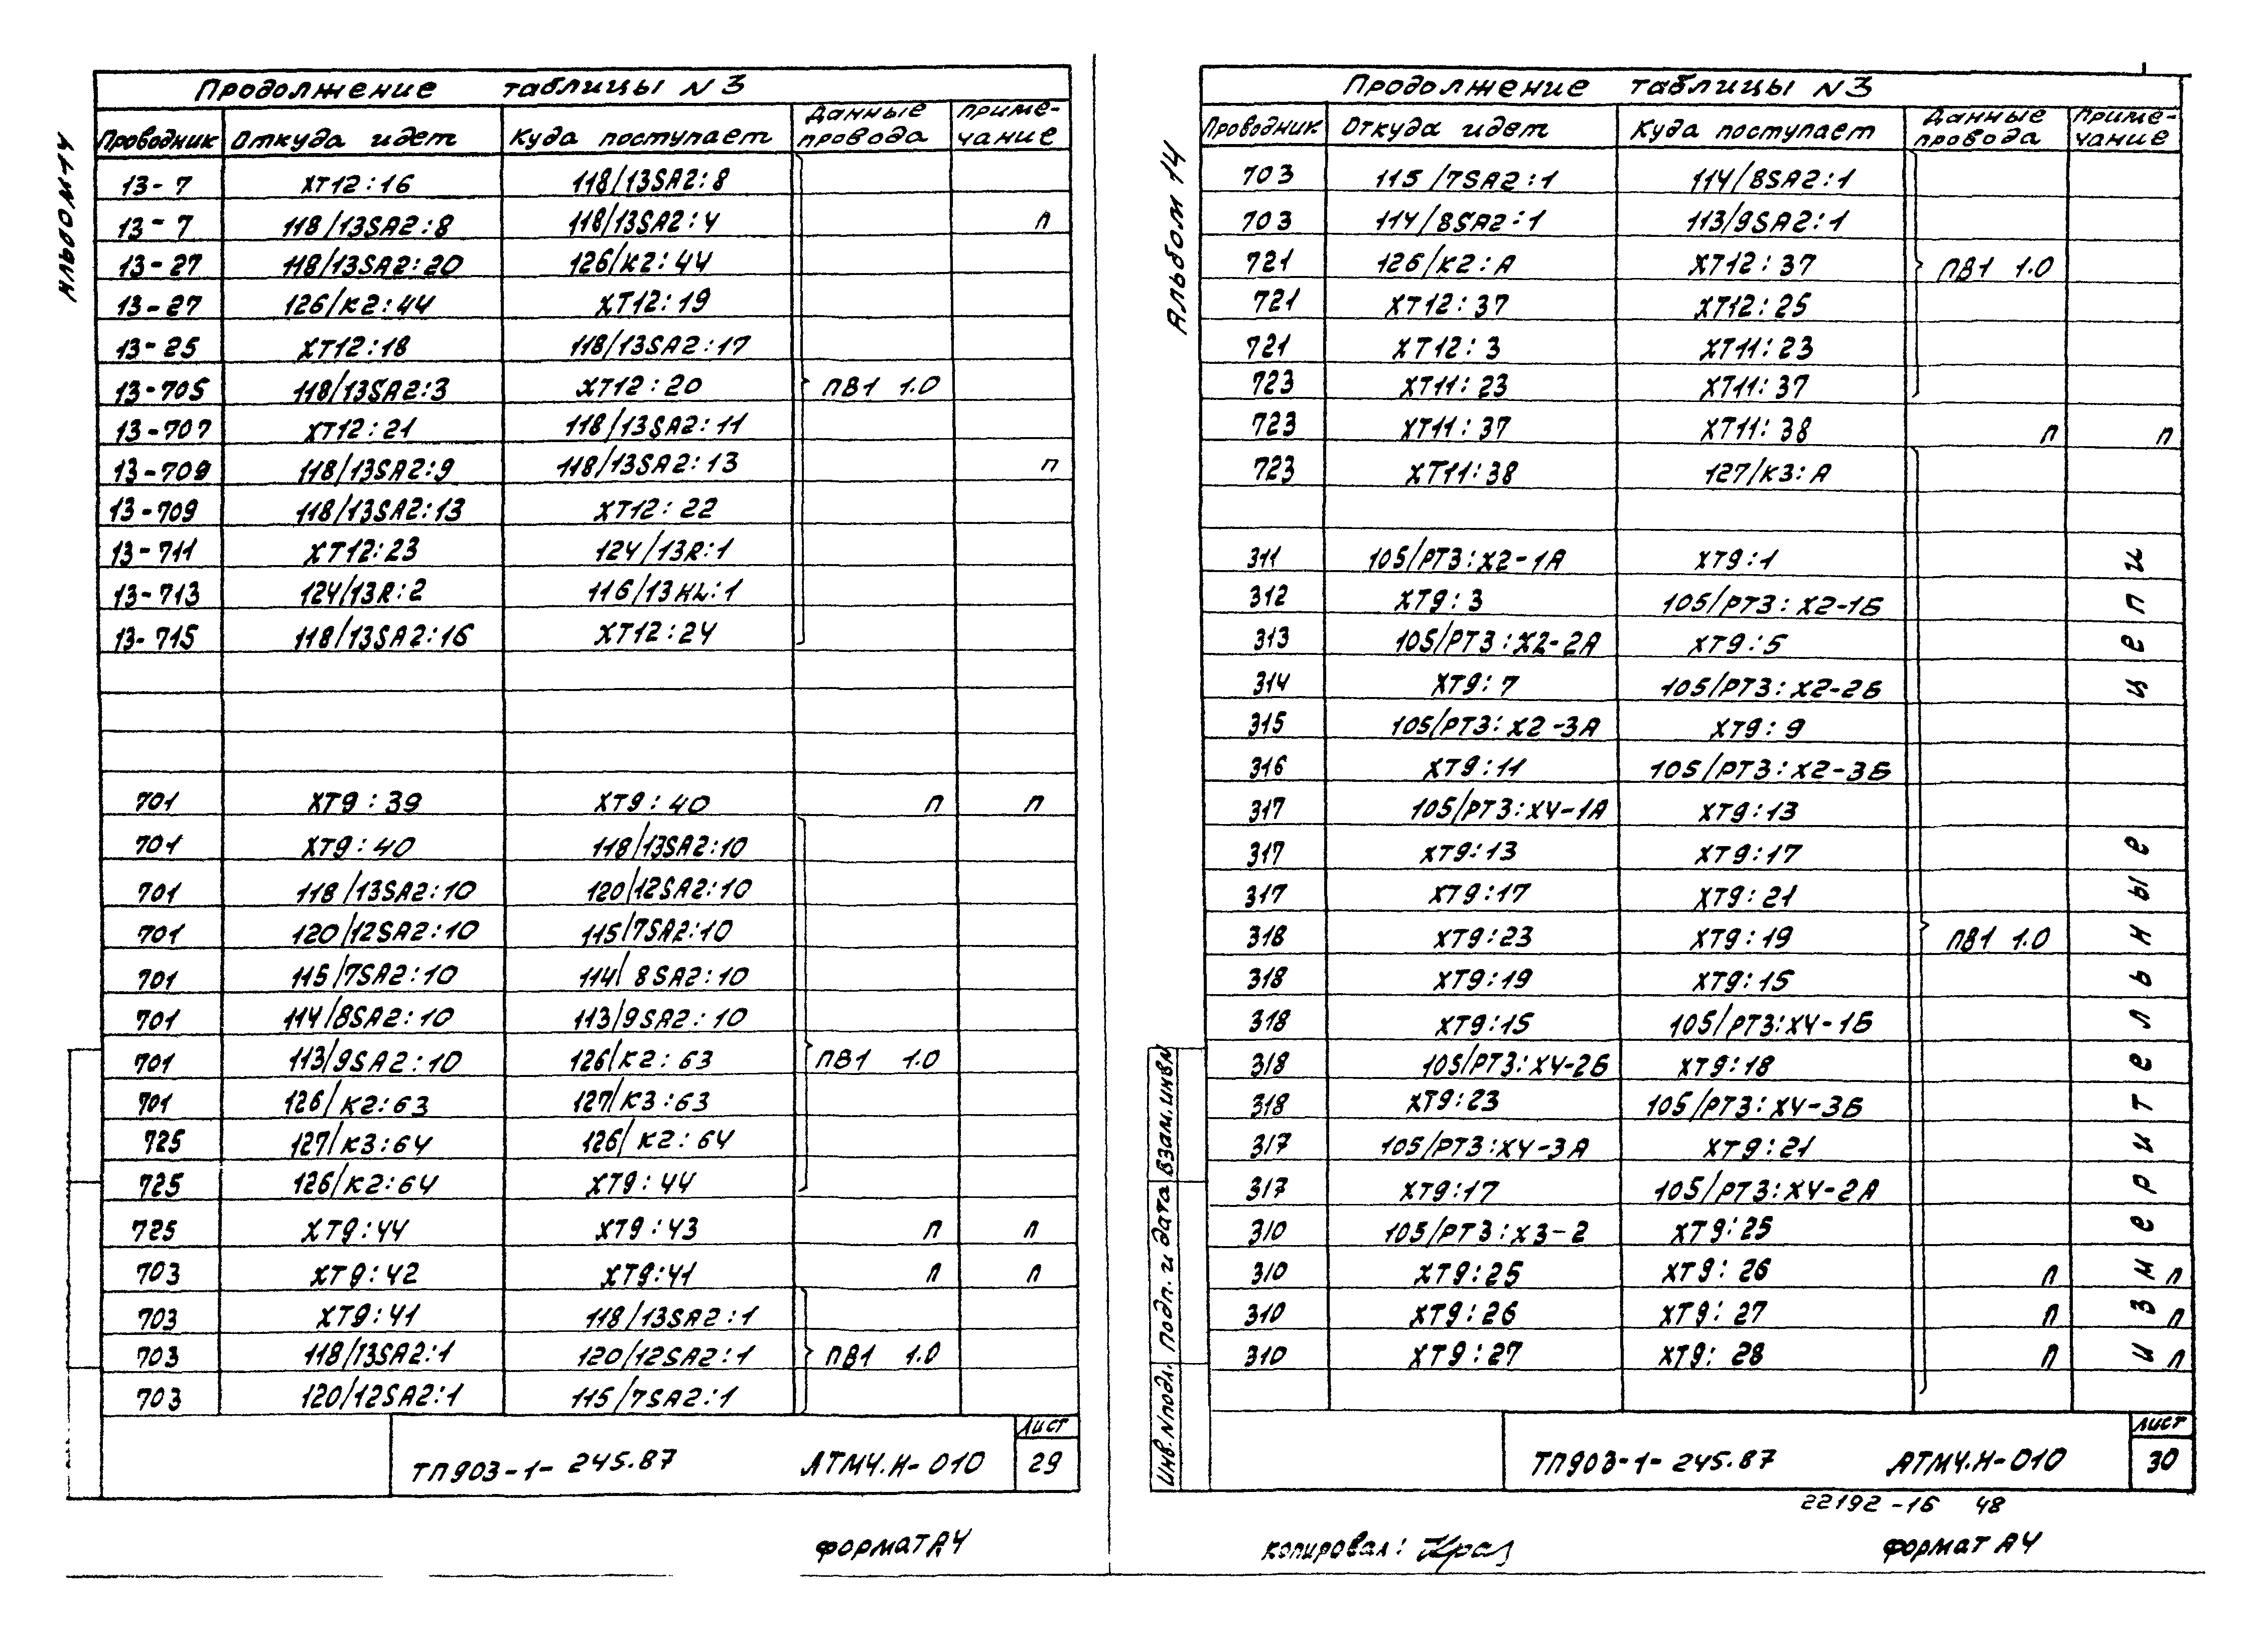 Альбом 14
Продолжение таблицы N3
Проводник Откуда идет Куда поступает Данные провода Примечание
13-7 XT12:16 118/13SA2:8
13-7 118/13SA2:8 118/13SA2:4 п
13-27 118/13SA2:20 126/K2:44
13-27 126/K2:44 XT12:19
13-25 XT12:18 118/13SA2:17
13-705 118/13SA2:3 XT12:20 ПВ1 1.0
13-707 XT12:21 118/13SA2:11
13-709 118/13SA2:9 118/13SA2:13 п
13-709 118/13SA2:13 XT12:22
13-711 XT12:23 124/13R:1
13-713 124/13R:2 116/13HL:1
13-715 118/13SA2:16 XT12:24
701 XT9:39 XT9:40 п п
701 XT9:40 118/13SA2:10
701 118/13SA2:10 120/12SA2:10
701 120/12SA2:10 115/7SA2:10
701 115/7SA2:10 114/8SA2:10
701 114/8SA2:10 113/9SA2:10
701 113/9SA2:10 126/K2:63 ПВ1 1.0
701 126/K2:63 127/K3:63
725 127/K3:64 126/K2:64
725 126/K2:64 XT9:44
725 XT9:44 XT9:43 п п
703 XT9:42 XT9:41 п п
703 XT9:41 118/13SA2:1
703 118/13SA2:1 120/12SA2:1 ПВ1 1.0
703 120/12SA2:1 115/7SA2:1
ТП903-1-245.87 АТМ4.Н-010 Лист 29
Формат А4
Альбом 14
Продолжение таблицы N3
Проводник Откуда идет Куда поступает Данные провода Примечание
703 115/7SA2:1 114/8SA2:1
703 114/8SA2:1 113/9SA2:1
721 126/K2:A XT12:37 ПВ1 1.0
721 XT12:37 XT12:25
721 XT12:3 XT11:23
723 XT11:23 XT11:37
723 XT11:37 XT11:38 п п
723 XT11:38 127/K3:A
311 105/PT3:X2-1A XT9:1
312 XT9:3 105/PT3:X2-1Б
313 105/PT3:X2-2A XT9:5
314 XT9:7 105/PT3:X2-2Б
315 105/PT3:X2-3A XT9:9
316 XT9:11 105/PT3:X2-3Б
317 105/PT3:X4-1A XT9:13
317 XT9:13 XT9:17
317 XT9:17 XT9:21
318 XT9:23 XT9:19 ПВ1 1.0
318 XT9:19 XT9:15
318 XT9:15 105/PT3:X4-1Б
318 105/PT3:X4-2Б XT9:18
318 XT9:23 105/PT3:X4-3Б
317 105/PT3:X4-3A XT9:21
317 XT9:17 105/PT3:X4-2A
310 105/PT3:X3-2 XT9:25
310 XT9:25 XT9:26 п п
310 XT9:26 XT9:27 п п
310 XT9:27 XT9:28 п п
измерительные цепи
Инв.Nподл. Подп. и дата Взам.инвN
ТП903-1-245.87 АТМ4.Н-010 Лист 30
22192-16 48
Копировал: Формат А4